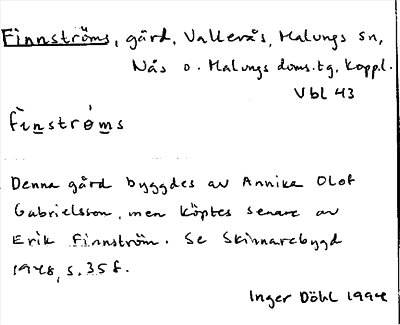 Finnströms, gård, Vallerås, Malungs sn,
Nås o. Malungs doms.tg, Koppl.
Vbl 43
fìnstrǿms
Denna gård byggdes av Annika Olof
Gabrielsson, men köptes senare av
Erik Finnström. Se Skinnarebygd
1948, s. 35 f.
Inger Döhl 1994